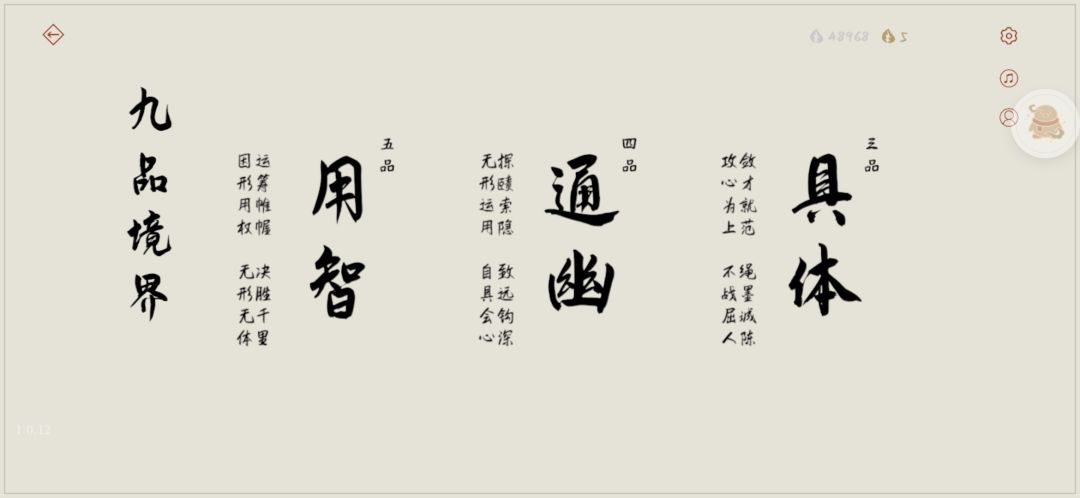 48968
5
九品境界
三品
具体
敛才就范 绳墨诚陈
攻心为上 不战屈人
四品
通幽
探赜索隐 致远钩深
无形运用 自具会心
五品
用智
运筹帷幄 决胜千里
因形用权 无形无体
1.0.12